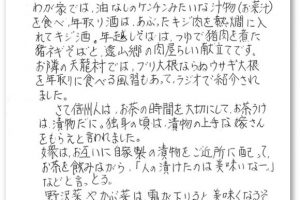 わが家では、油なしのケンチンみたいな汁物(お菜汁)
を食べ、年取り酒は、あぶったキジ肉を熱燗に入
れてキジ酒。年越しそばは、つゆで猪肉を煮た
猪そばと、遠山郷の肉屋らしい献立てです。
お隣の天龍村では、ぶり大根ならぬウサギ大根
を年取りに食べる風習もあって、ラジオで紹介され
ました。
さて信州人は、お茶の時間を大切にして、お茶うけ
は、漬物だに。独身の頃は、漬物の上手な嫁さん
をもらえと言われました。
嫁は、お互いに自家製の漬物をご近所に配って、
お茶を飲みながら、「人の漬けたのは美味いなー」
などと言。とう。
野沢菜やかぶ菜は霜が下りると美味くなるそ